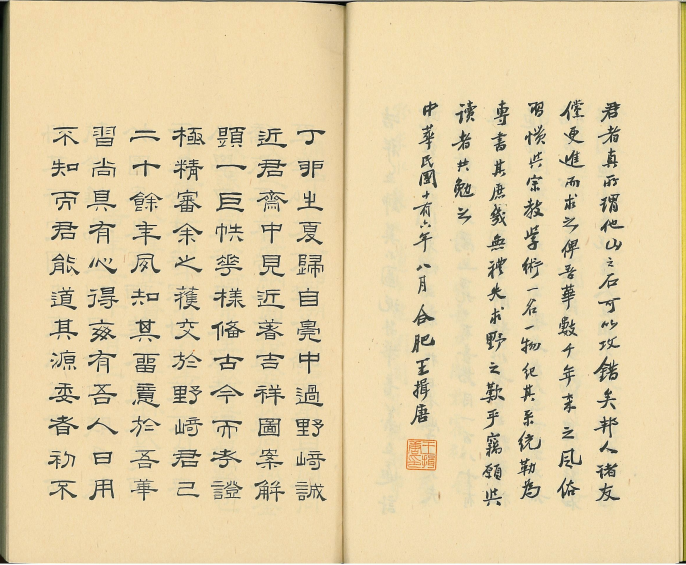 君者真所謂他山之石可以攻錯矣邦人諸友
儻更進而求之俾吾華數千年來之風俗
習慣與宗教學術一名一物紀其系統勒為
專書其庶幾無禮失求野之歎乎竊願與
讀者共勉之
中華民國十有六年八月合肥王揖唐
王揖唐印
丁卯之夏歸自亳中過野崎誠
近君齋中見近著吉祥圖案解
題一巨帙花樣備古今而考證
極精審余之獲交於野崎君已
二十餘年夙知其留意於吾華
習尚具有心得茲有吾人日用
不知而君能道其源委者初不